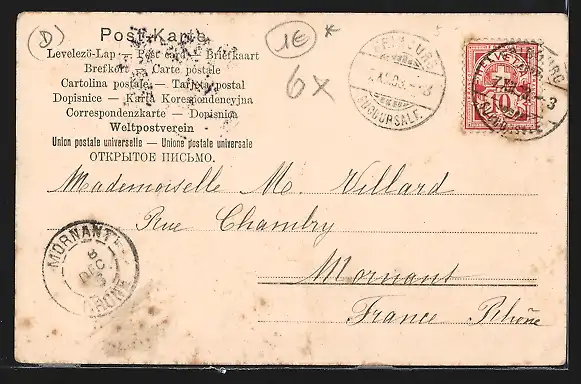 D
1€
6x
Post-Karte
Levelező-Lap — Post card — Briefkaart
Brefkort — Carte postale
Cartolina postale — Tarjeta postal
Dopisnice — Karta Korespondencyjna
Correspondenzkarte — Dopisnica
Weltpostverein
Union postale universelle — Unione postale universale
ОТКРЫТОЕ ПИСЬМО.
SUCCURSALE
HELVETIA
10
Mademoiselle M. Villard
Rue Chambry
Mornant
France Rhône
MORNANT
DEC
RHONE